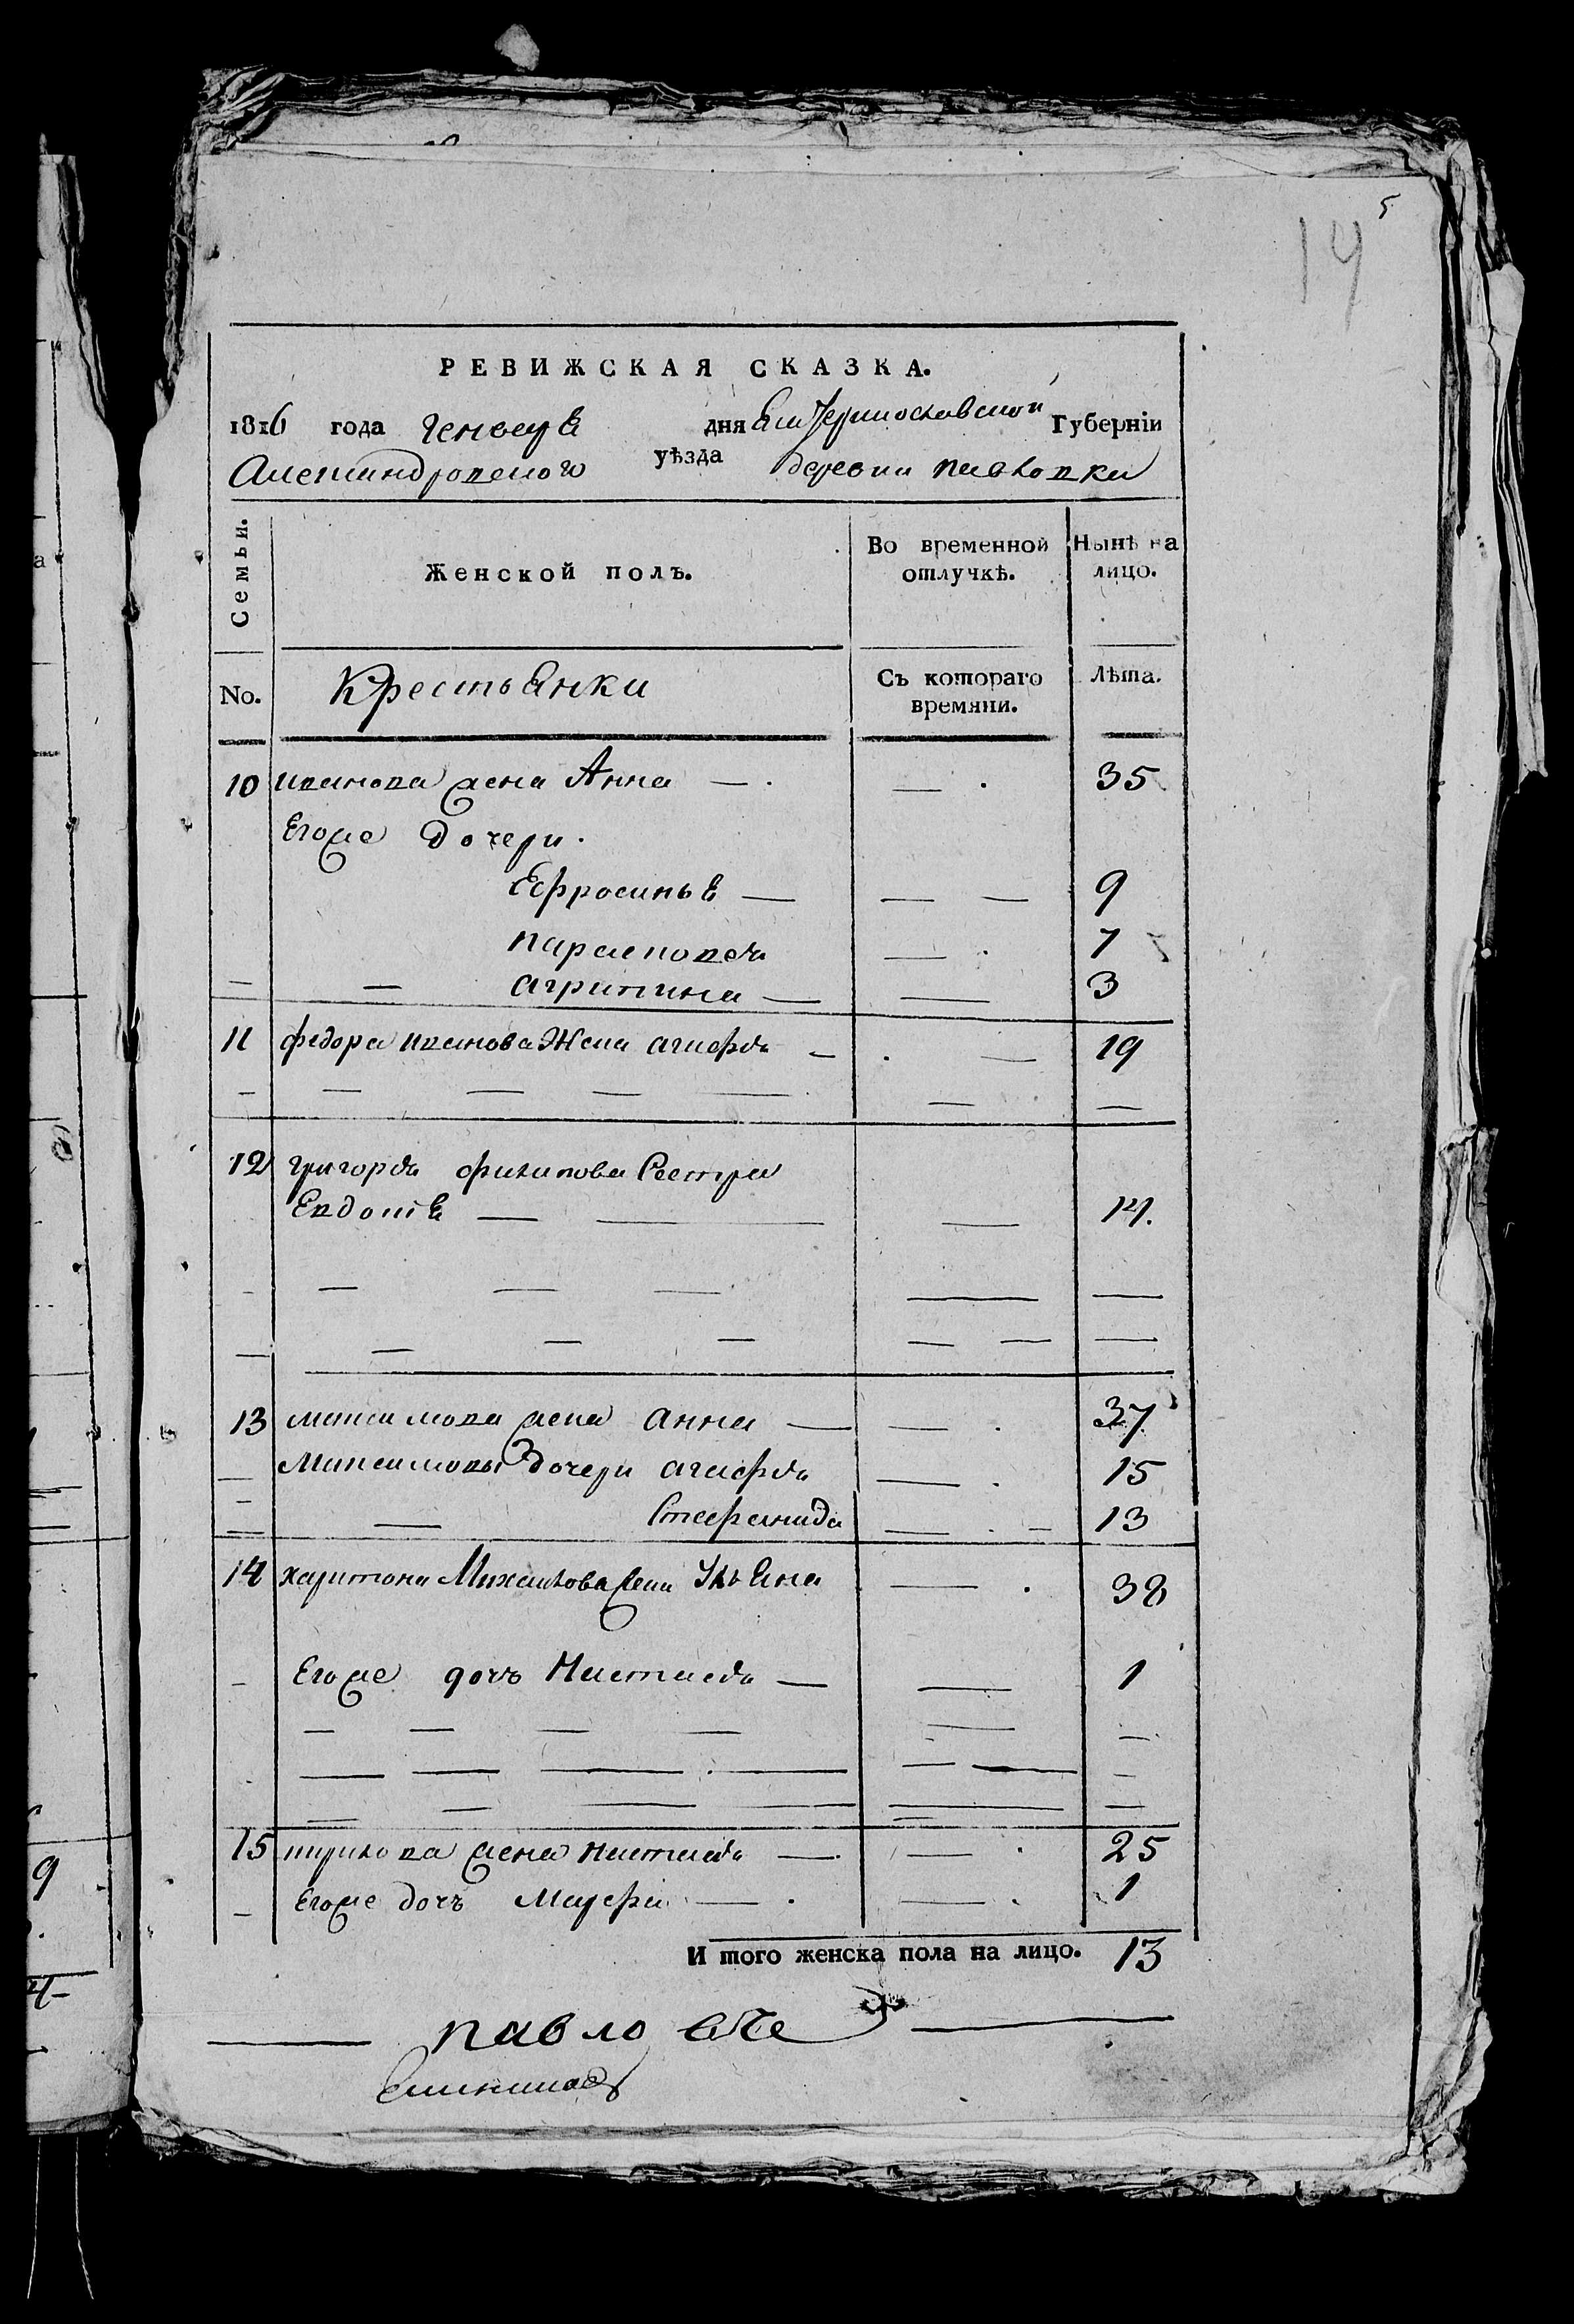 5
14
РЕВИЖСКАЯ СКАЗКА.
1816 года Генваря дня Екатеринославской Губерніи
Александровского уѣзда деревни павловки
Семьи. Женской полъ. Во временной отлучкѣ. Нынѣ на лицо.
No. Крестьянки Съ котораго времяни. Лѣта.
10 иванова жена Анна — . — . 35
Егоже дочери.
Ефросинья — — — 9
парасковея — . 7
— — агрипина — — 3
11 федора иванова Жена агафия — . — 19
12 григория филипова Сестра
Евдокия — — — 14.
13 максимова жена анна — — . 37
— Максимовы дочери агафия — . 15
— — Стефанида — . — 13
14 харитона Михайлова жена Ульяна — . 38
— Егоже дочь Настасия — — 1
15 кирилова жена настасия — . — . 25
— Егоже дочь Марфа — . — . 1
И того женска пола на лицо. 13
— павло вѣе —